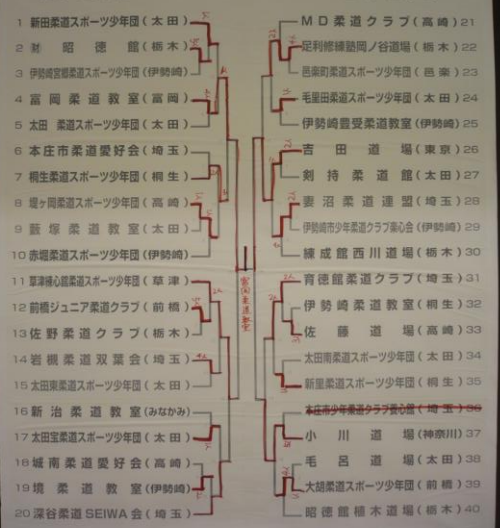 1 新田柔道スポーツ少年団 (太田)
2 ㈶ 昭徳館 (栃木)
3 伊勢崎宮郷柔道スポーツ少年団 (伊勢崎)
4 富岡柔道教室 (富岡)
5 太田 柔道スポーツ少年団 (太田)
6 本庄市柔道愛好会 (埼玉)
7 桐生柔道スポーツ少年団 (桐生)
8 堤ヶ岡柔道スポーツ少年団 (高崎)
9 薮塚柔道教室 (太田)
10 赤堀柔道スポーツ少年団 (伊勢崎)
11 草津補心館柔道スポーツ少年団 (草津)
12 前橋ジュニア柔道クラブ (前橋)
13 佐野柔道クラブ (栃木)
14 岩槻柔道双葉会 (埼玉)
15 太田東柔道スポーツ少年団 (太田)
16 新治柔道教室 (みなかみ)
17 太田宝柔道スポーツ少年団 (太田)
18 城南柔道愛好会 (高崎)
19 境柔道教室 (伊勢崎)
20 深谷柔道SEIWA会 (埼玉)
富岡柔道教室
MD柔道クラブ (高崎) 21
足利修練塾岡ノ谷道場 (栃木) 22
邑楽町柔道スポーツ少年団 (邑楽) 23
毛里田柔道スポーツ少年団 (太田) 24
伊勢崎豊受柔道教室 (伊勢崎) 25
吉田道場 (東京) 26
剣持柔道館 (太田) 27
妻沼柔道連盟 (埼玉) 28
伊勢崎市少年柔道クラブ養心会 (伊勢崎) 29
練成館西川道場 (栃木) 30
育徳館柔道クラブ (埼玉) 31
伊勢崎柔道教室 (桐生) 32
佐藤道場 (高崎) 33
太田南柔道スポーツ少年団 (太田) 34
新里柔道スポーツ少年団 (桐生) 35
本庄市少年柔道クラブ養心館 (埼玉) 36
小川道場 (神奈川) 37
毛呂道場 (太田) 38
大胡柔道スポーツ少年団 (前橋) 39
昭徳館植木道場 (栃木) 40